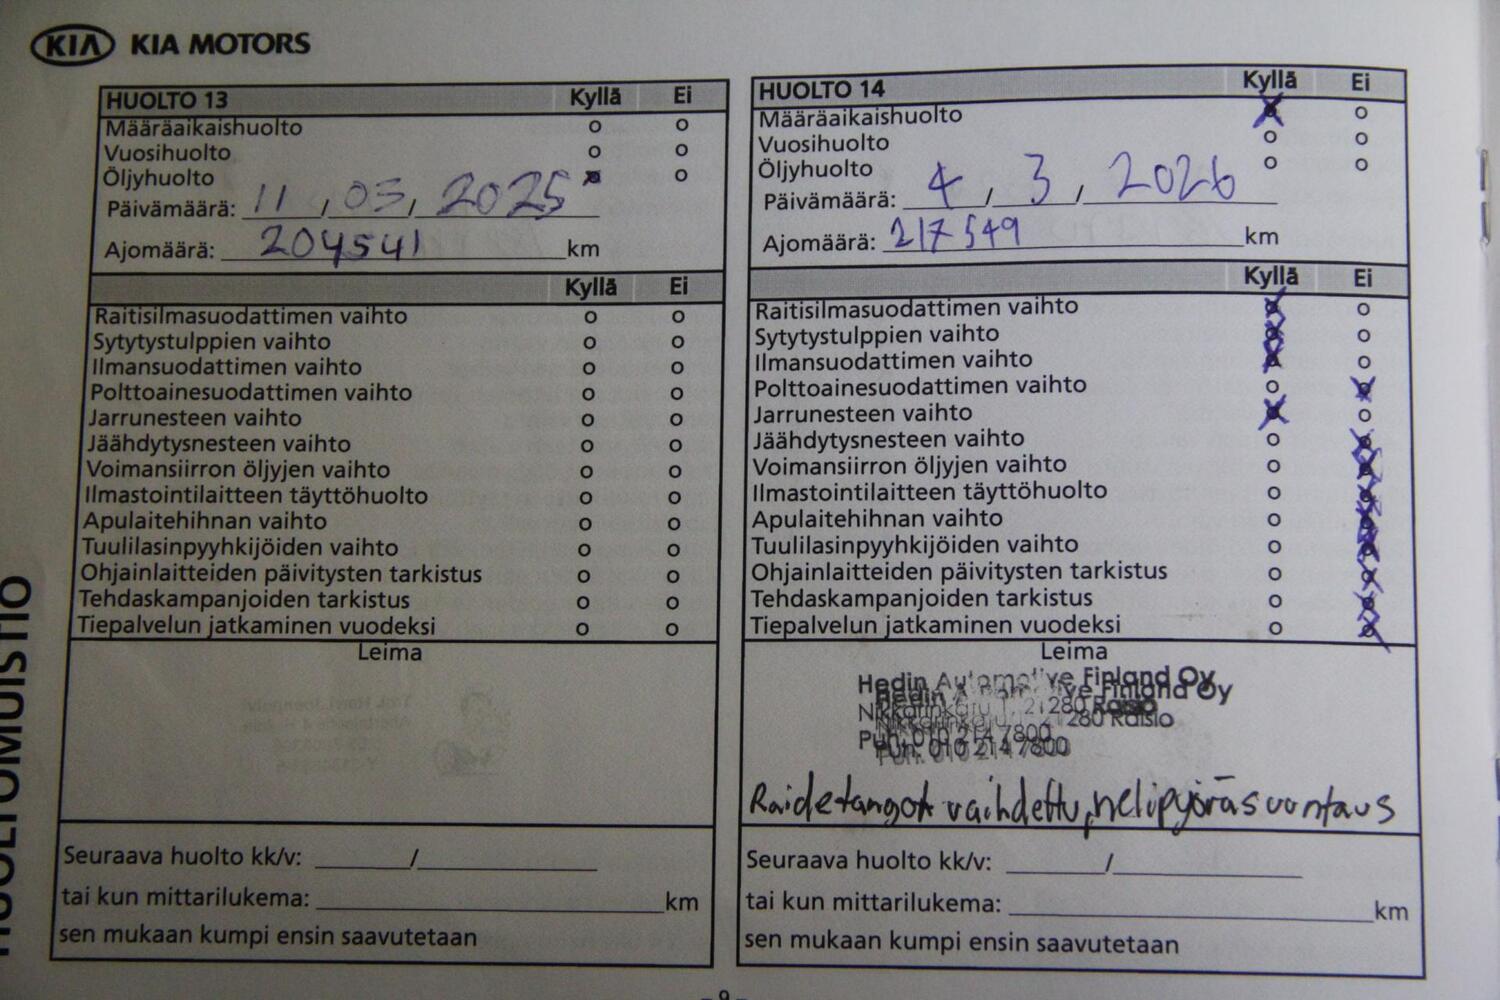 KIA KIA MOTORS
HUOLTO 13 Kyllä Ei
Määräaikaishuolto o o
Vuosihuolto o o
Öljyhuolto x o
Päivämäärä: 11, 05, 2025
Ajomäärä: 204541 km
Kyllä Ei
Raitisilmasuodattimen vaihto o o
Sytytystulppien vaihto o o
Ilmansuodattimen vaihto o o
Polttoainesuodattimen vaihto o o
Jarrunesteen vaihto o o
Jäähdytysnesteen vaihto o o
Voimansiirron öljyjen vaihto o o
Ilmastointilaitteen täyttöhuolto o o
Apulaitehihnan vaihto o o
Tuulilasinpyyhkijöiden vaihto o o
Ohjainlaitteiden päivitysten tarkistus o o
Tehdaskampanjoiden tarkistus o o
Tiepalvelun jatkaminen vuodeksi o o
Leima
Seuraava huolto kk/v: ______/____________
tai kun mittarilukema: ____________ km
sen mukaan kumpi ensin saavutetaan
HUOLTO 14 Kyllä Ei
Määräaikaishuolto x o
Vuosihuolto o o
Öljyhuolto o o
Päivämäärä: 4 / 3 / 2026
Ajomäärä: 217549 km
Kyllä Ei
Raitisilmasuodattimen vaihto x o
Sytytystulppien vaihto x o
Ilmansuodattimen vaihto x o
Polttoainesuodattimen vaihto o x
Jarrunesteen vaihto x o
Jäähdytysnesteen vaihto o x
Voimansiirron öljyjen vaihto o x
Ilmastointilaitteen täyttöhuolto o x
Apulaitehihnan vaihto o x
Tuulilasinpyyhkijöiden vaihto o x
Ohjainlaitteiden päivitysten tarkistus o x
Tehdaskampanjoiden tarkistus o x
Tiepalvelun jatkaminen vuodeksi o x
Leima
Hedin Automotive Finland Oy
21280 Raisio
Puh. 010 214 7800
Raidetangot vaihdettu, nelipyöräsuuntaus
Seuraava huolto kk/v: ______/____________
tai kun mittarilukema: ____________ km
sen mukaan kumpi ensin saavutetaan
HUOLTOMUISTIO
- 9 -